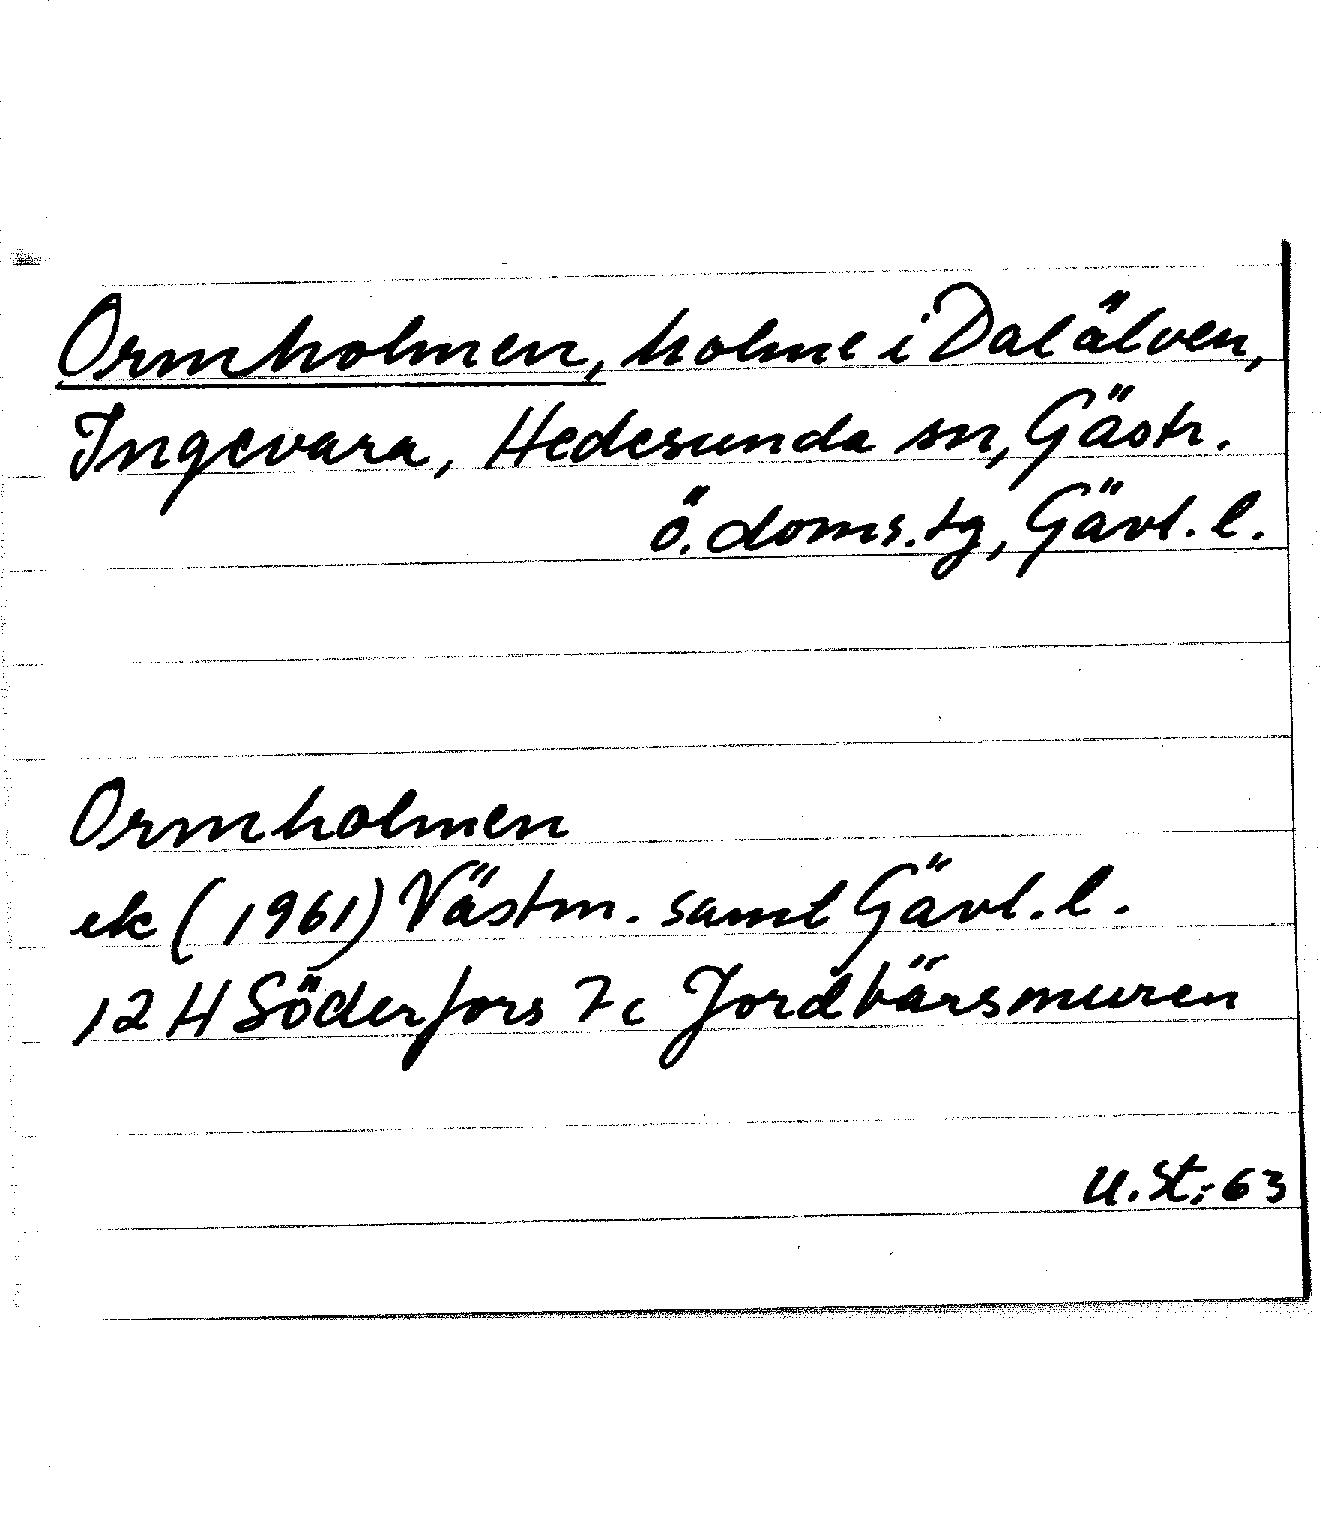 Ormholmen, holme i Dalälven,
Ingevara, Hedesunda sn, Gästr.
ö. doms.tg, Gävl. l.
Ormholmen
ek (1961) Västm. samt Gävl. l.
12 H Söderfors 7c Jordbärsmuren
U. St. 63